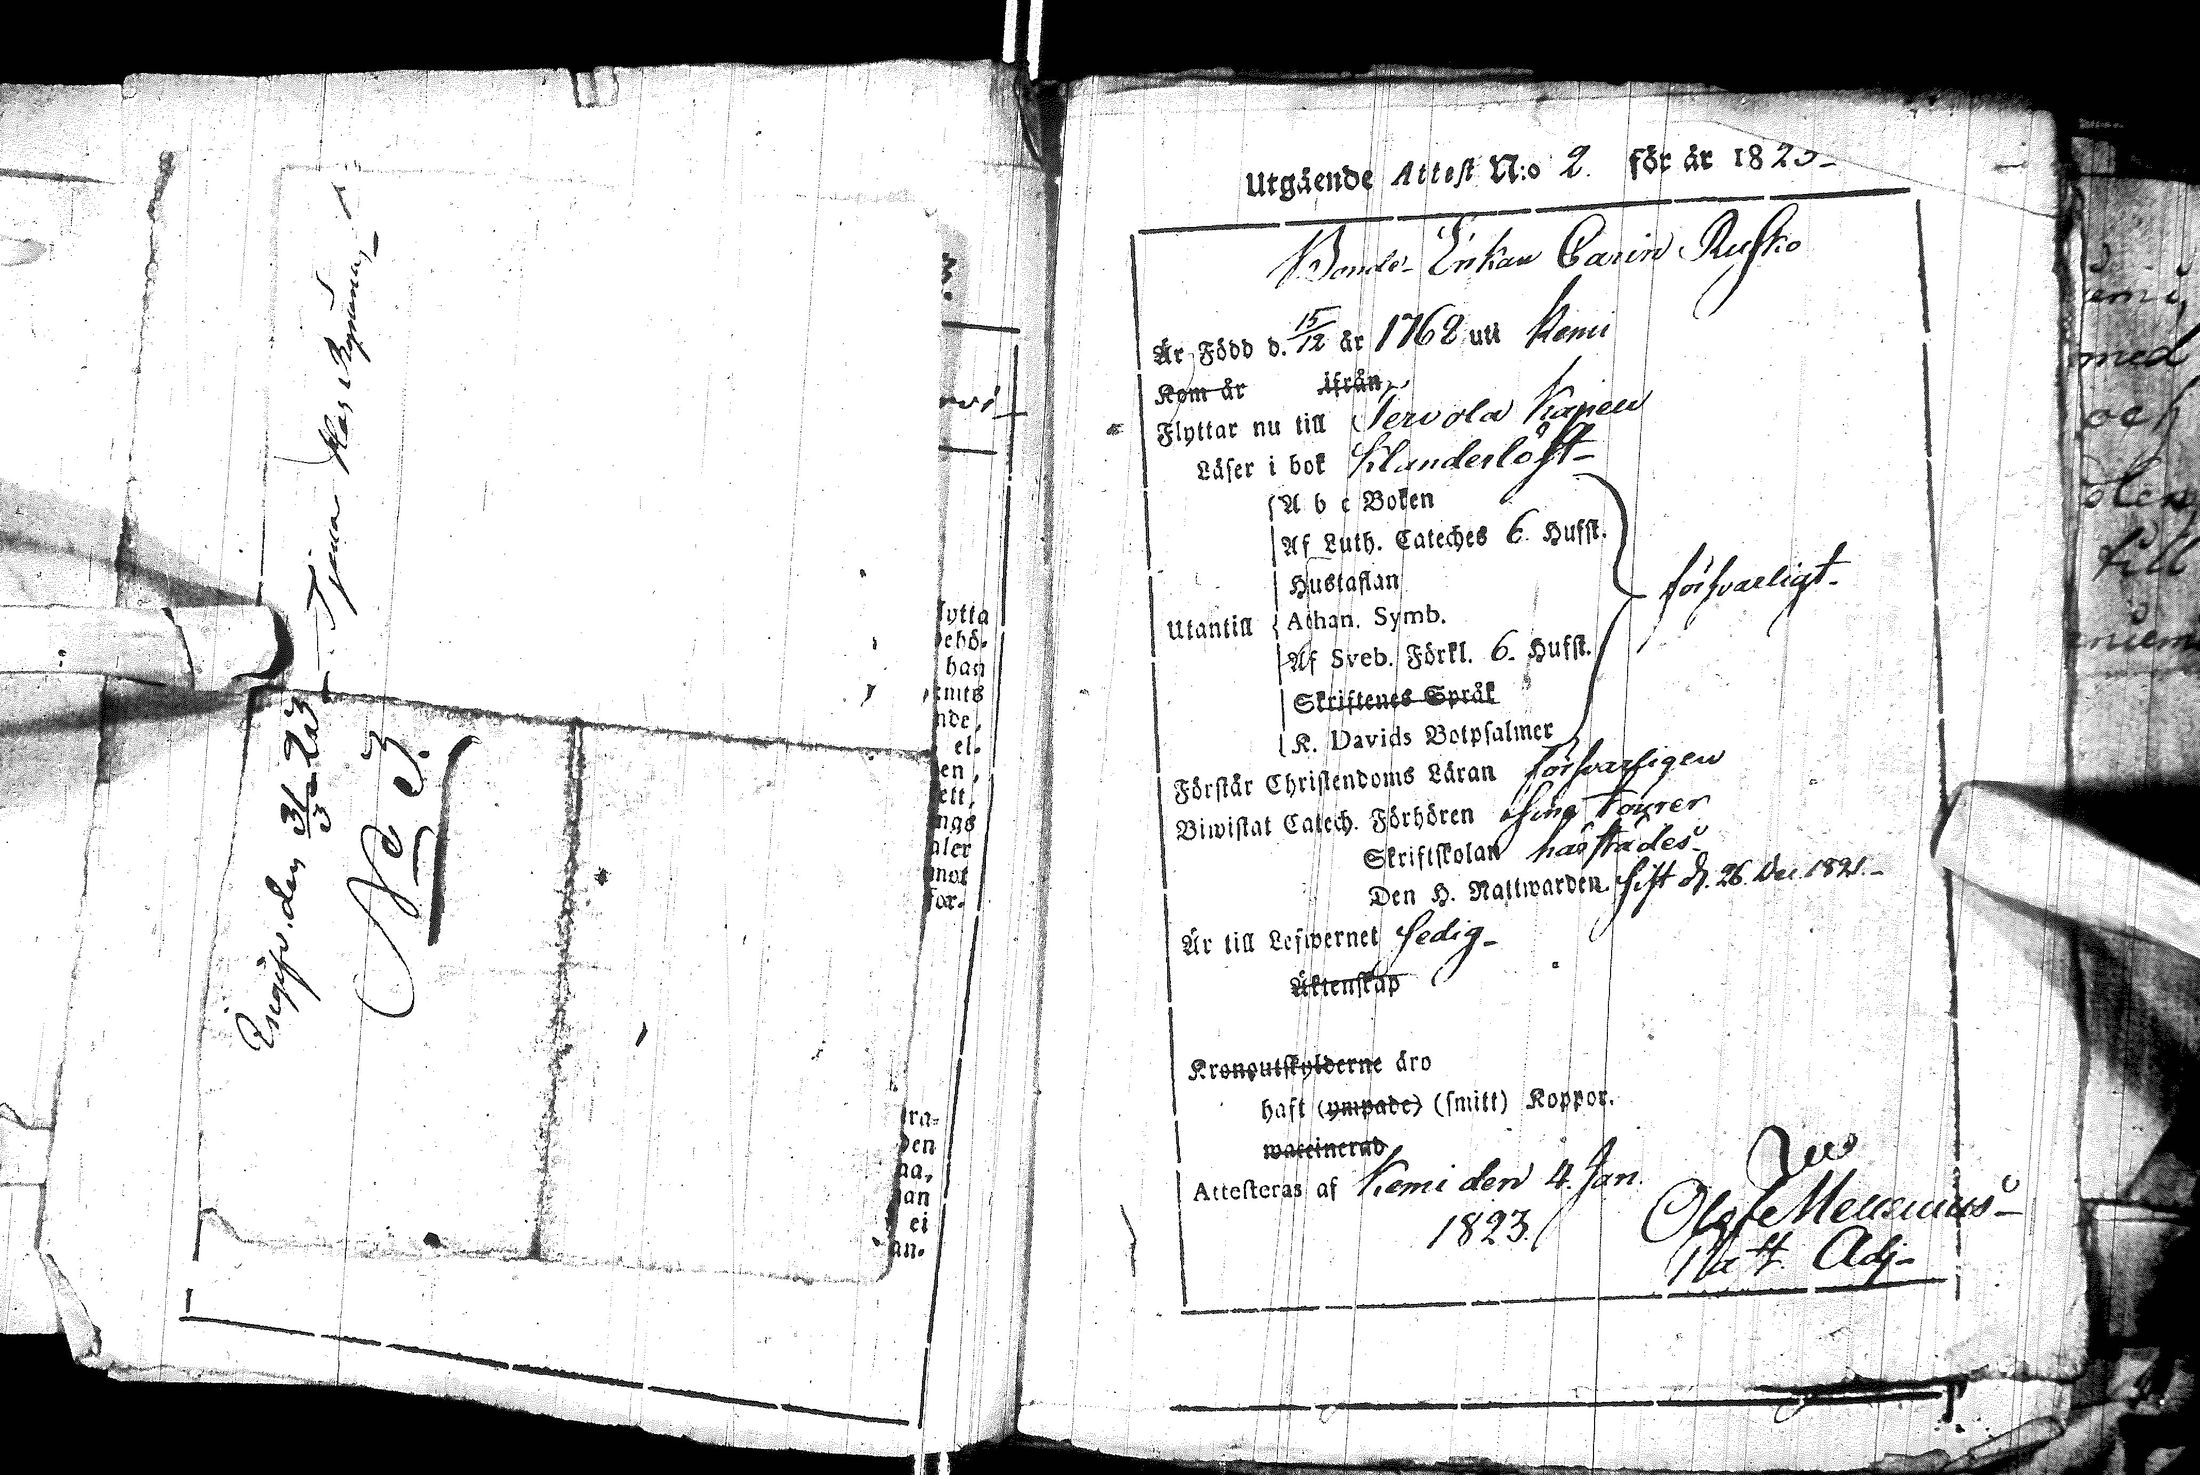 Ingifv. den 31/3 1823
Tjena hos
No 3.
lytta
behö-
han
nde,
el-
en,
ett,
ngs
aler
mot
för-
tra-
den
na,
an
ei
an-
Utgående Attest N:o 2. för år 1823-
Bonde Enkan Carin Rusko
Är Född d. 15/12 år 1768 uti Kemi
Kom år ifrån
Flyttar nu till Tervola Kapell
Läser i bok klanderlöst-
A b c Boken
Af Luth. Cateches 6 Hufst.
Hustaflan
försvarligt-
Utantill Athan. Symb.
Af Sveb. Förkl. 6. Hufst.
Skriftenes Språk
K. Davids Botpsalmer
Förstår Christendoms Läran försvarligen
Biwistat Catech. Förhören sina tourer
Skriftskolan härstädes
Den H. Nattwarden. sist d. 26. Dec. 1821.-
Är till Lefwernet sedig-
Äktenskap
Kronoutskylderne äro
haft (ympade) (smitt) Koppor.
waccinerad
Attesteras af Kemi den 4. Jan.
1823.
Adj-
med
och
till